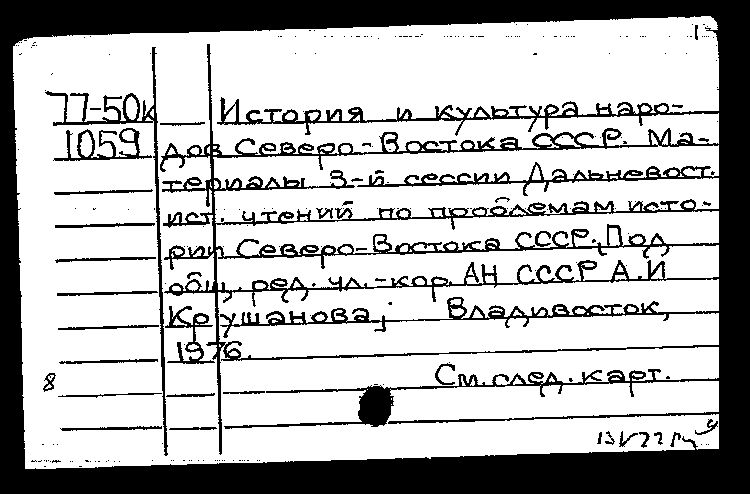 1
77-50к История и культура наро-
1059 дов Северо-Востока СССР. Ма-
териалы 3-й сессии Дальневост.
ист. чтений по проблемам исто-
рии Северо-Востока СССР. [Под
общ. ред. чл.-кор. АН СССР А.И
Крушанова]. Владивосток,
1976.
8 См. след. карт.